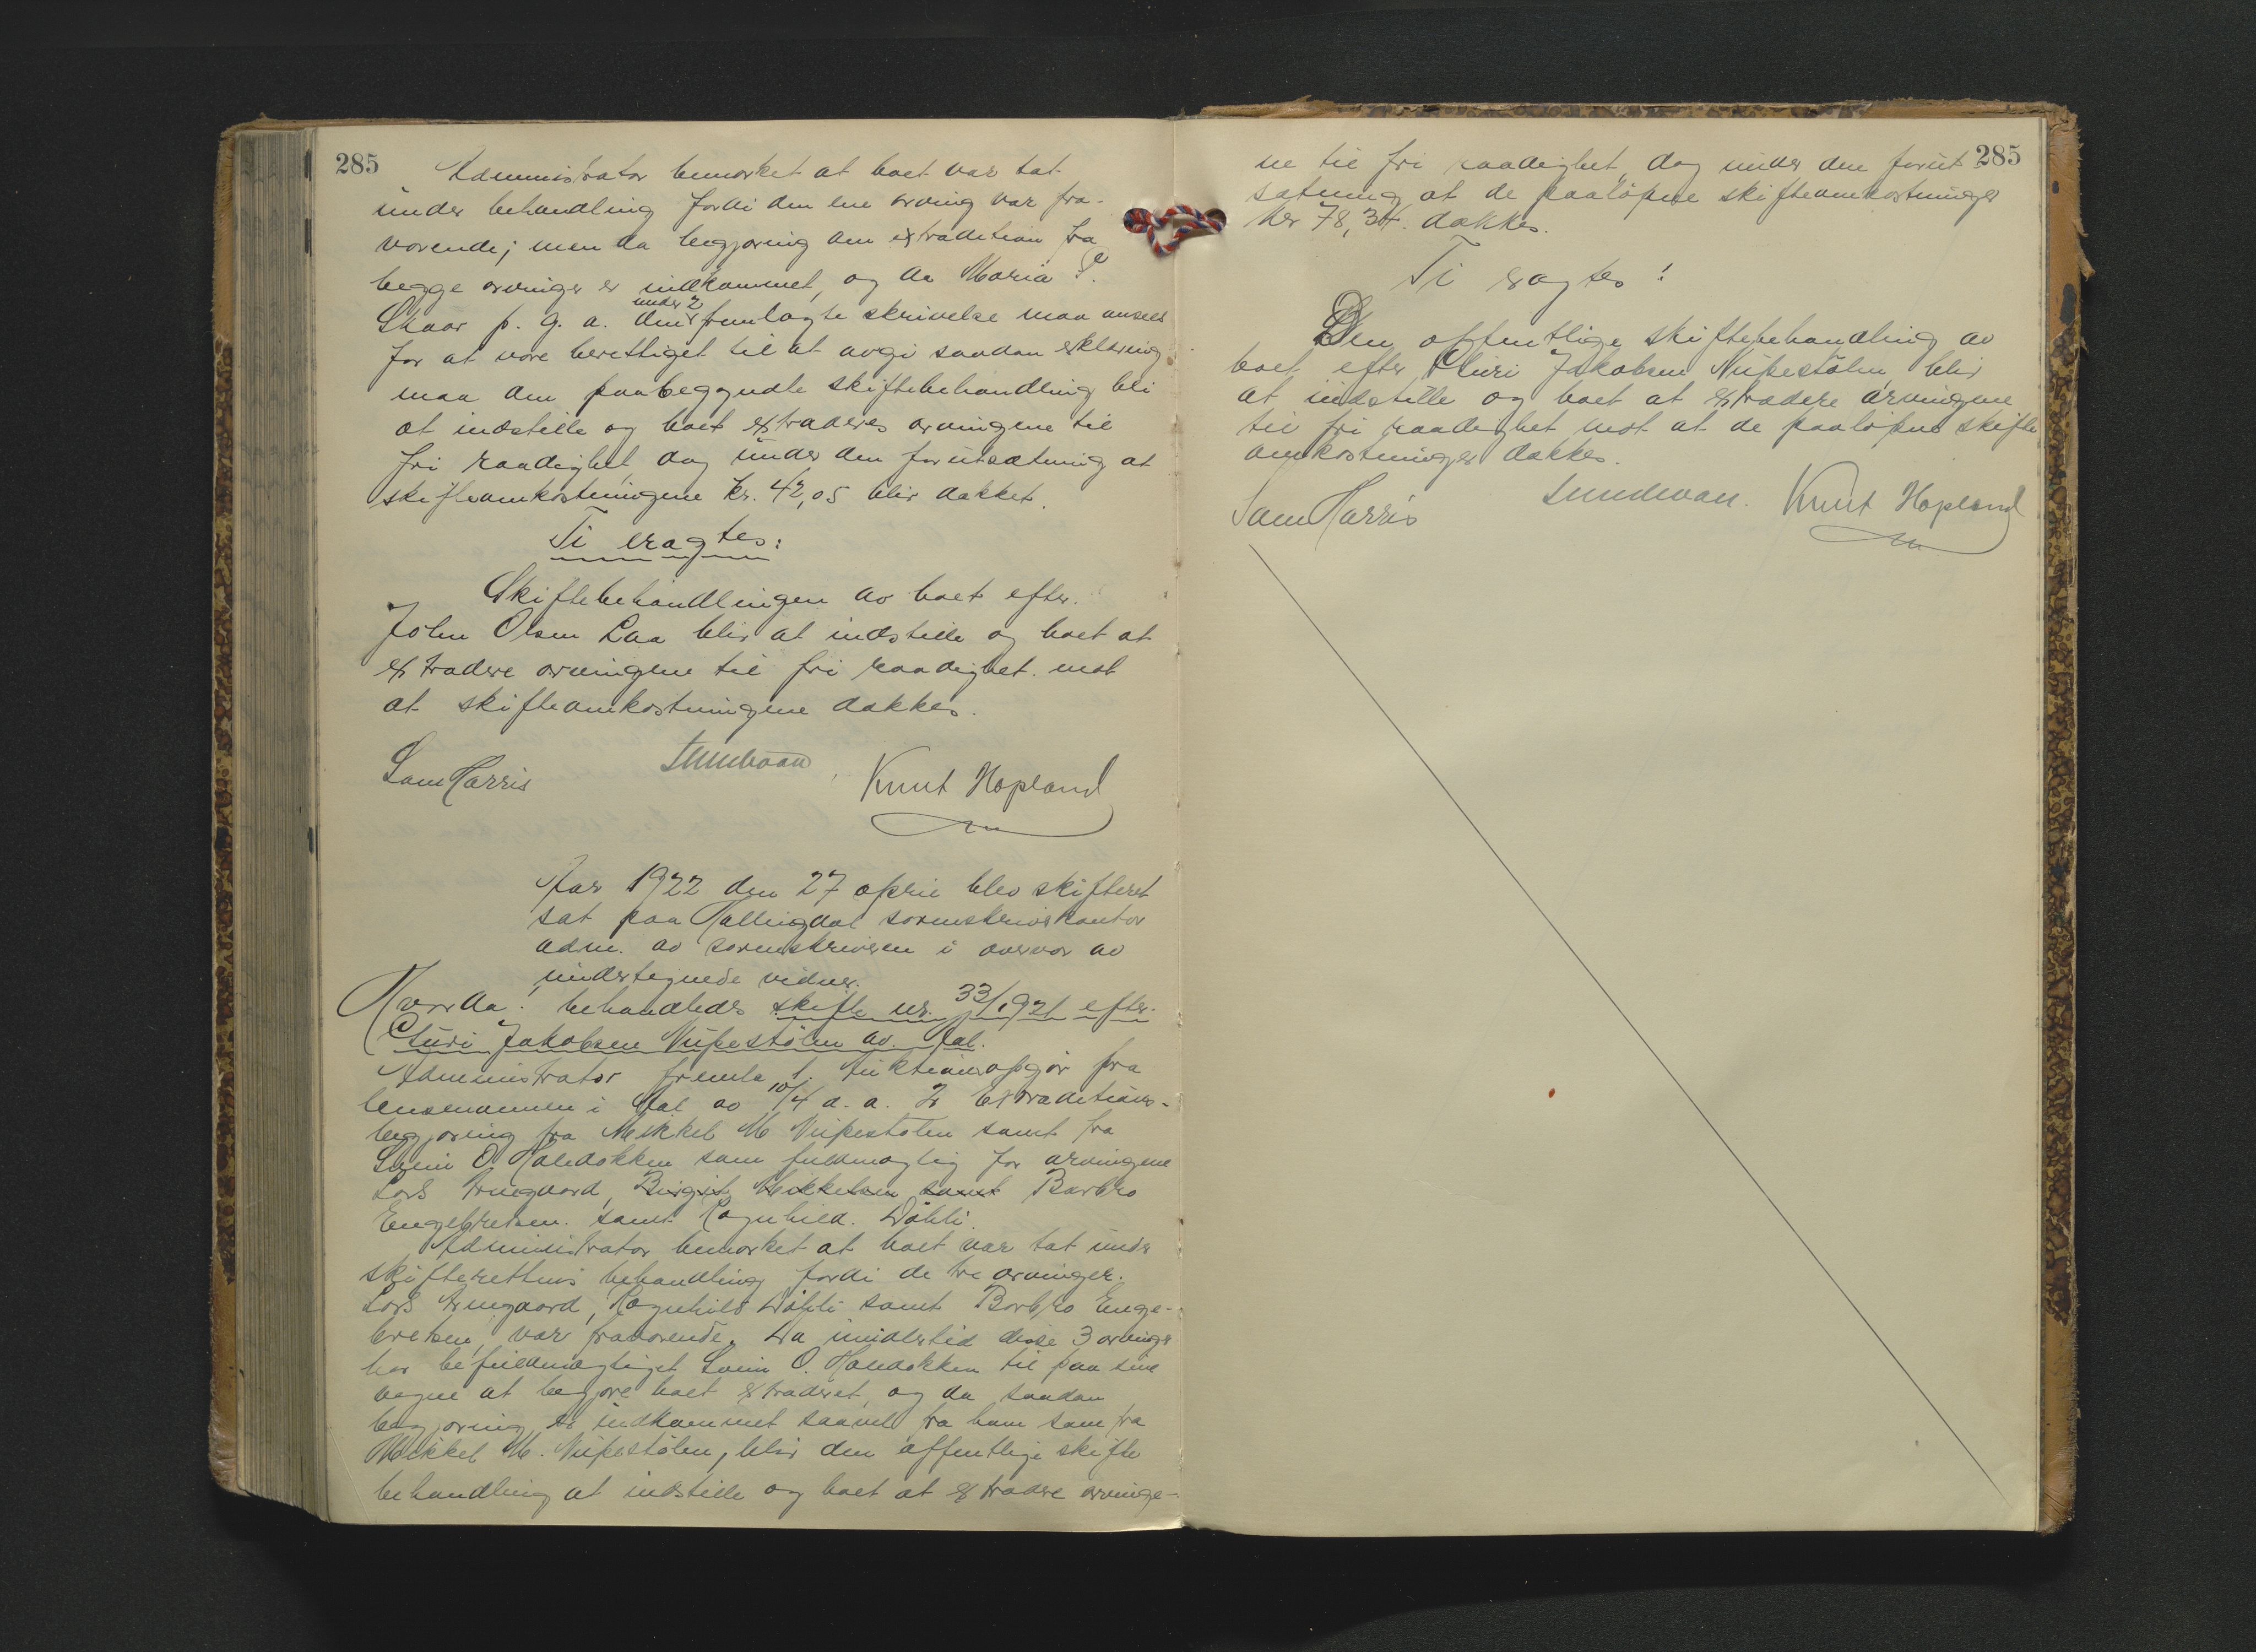 285
Administrator bemerket at boet var tat
under behandling fordi den ene arving var fra-
værende; men da begjæring om extradition fra
begge arvinger er indkommet, og da Maria P.
Skaar p. g. a. den under 2 fremlagte skrivelse maa ansees
for at være berettiget til at avgi saadan erklæring
maa den paabegyndte skiftebehandling bli
at indstille og boet extraderes arvingene til
fri raadighet dog under den forutsætning at
skifteomkostningene kr. 42,05 blir dækket.
Ti eragtes:
Skiftebehandlingen av boet efter
John Olsen Laa blir at indstille og boet at
extradere arvingene til fri raadighet mot
at skifteomkostningene dækkes.
Sam Harris Sundvaan. Knut Hopland
Aar 1922 den 27 april blev skifteret
sat paa Hallingdal sorenskriverkontor
adm. av sorenskriveren i overvær av
undertegnede vidner.
Hvorda! behandledes skifte nr. 33/1921 efter
Guri Jakobsen Nupestølen av Aal.
Administrator fremla 1. Auktionsopgjør fra
lensmannen i Aal av 10/4 d. a. 2 Extraditions-
begjæring fra Mikkel M Nupestølen samt fra
Svein O. Halidokken som fuldmægtig for arvingene
Lars Trugaard, Birgit Mikkelsen samt Barbro
Engebretsen samt Ragnhild Døhli.
Administrator bemerket at boet var tat under
skifterettens behandling fordi de tre arvinger
Lars Trugaard, Ragnhild Døhli samt Barbro Enge-
bretsen, var fraværende. Da imidlertid disse 3 arvinger
har befuldmægtiget Svein O. Halidokken til paa sine
vegne at begjære boet extraderet, og da saadan
begjæring er indkommet saavel fra ham som fra
Mikkel M. Nupestølen, blir den offentlige skifte
behandling at indstille og boet at extradere arvinge-
285
ne til fri raadighet, dog under den forut-
sætning at de paaløpne skifteomkostninger
kr 78,34. dækkes.
Ti eragtes!
Den offentlige skiftebehandling av
boet efter Guri Jakobsen Nupestølen blir
at indstille og boet at extradere arvingene
til fri raadighet mot at de paaløpne skifte
omkostninger dækkes.
Sam Harris Sundvaan. Knut Hopland